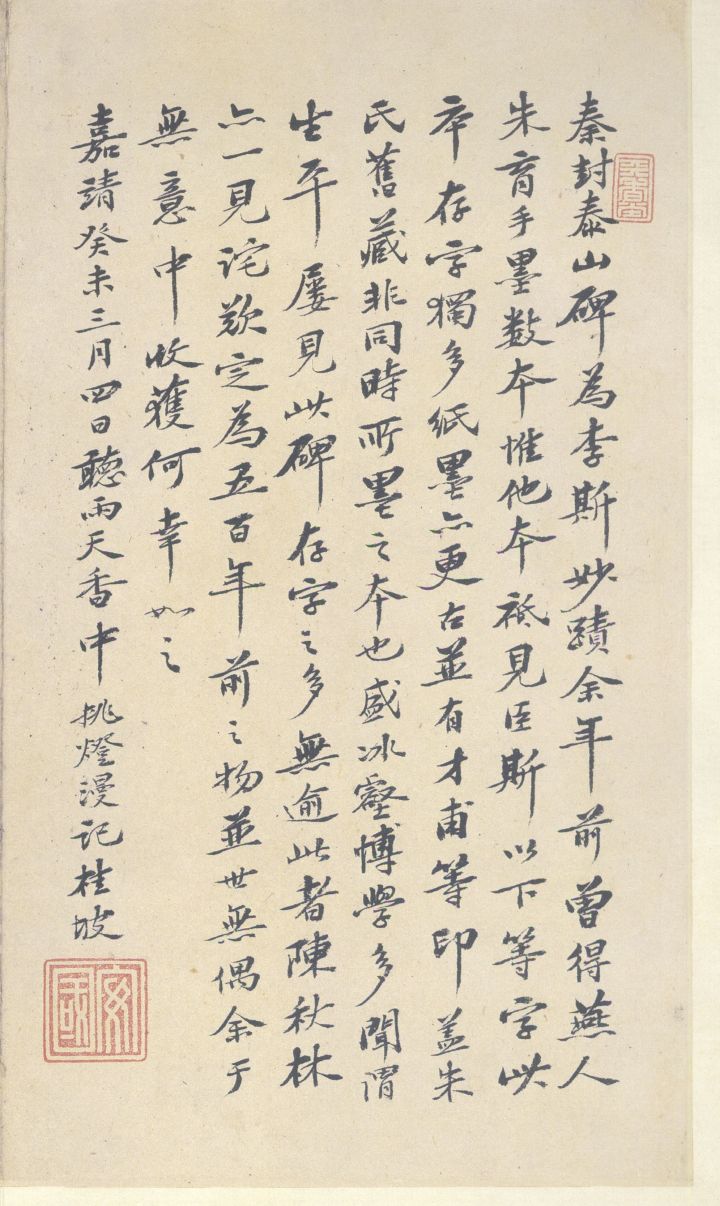 秦封泰山碑為李斯妙蹟余年前曾得燕人
朱育手墨数本惟他本祗見臣斯以下等字此
本存字獨多紙墨亦更古並有才甫等印蓋朱
氏舊藏非同時所墨之本也盛冰壑博學多聞謂
生平屡見此碑存字之多無逾此者陳秋林
亦一見詫歎定為五百年前之物並世無偶余于
無意中收獲何幸如之
嘉靖癸未三月四日聽雨天香中挑燈漫記桂坡
安國